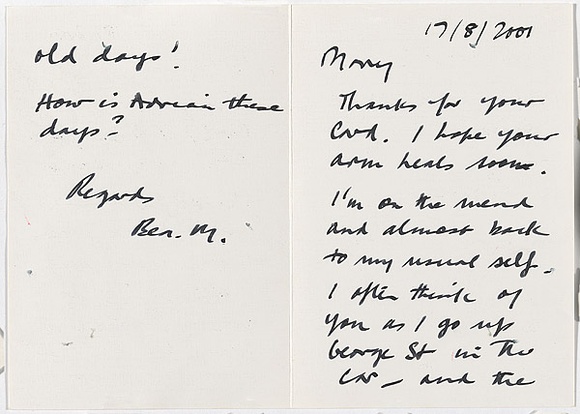 17/8/2001
Thanks for your
Card. I hope your
arm heals soon.
I'm on the mend
and almost back
to my usual self.
I often think of
you as I go up
George St in the
car – and the
old days!
How is Adrian these
days?
Regards
Ben. M.